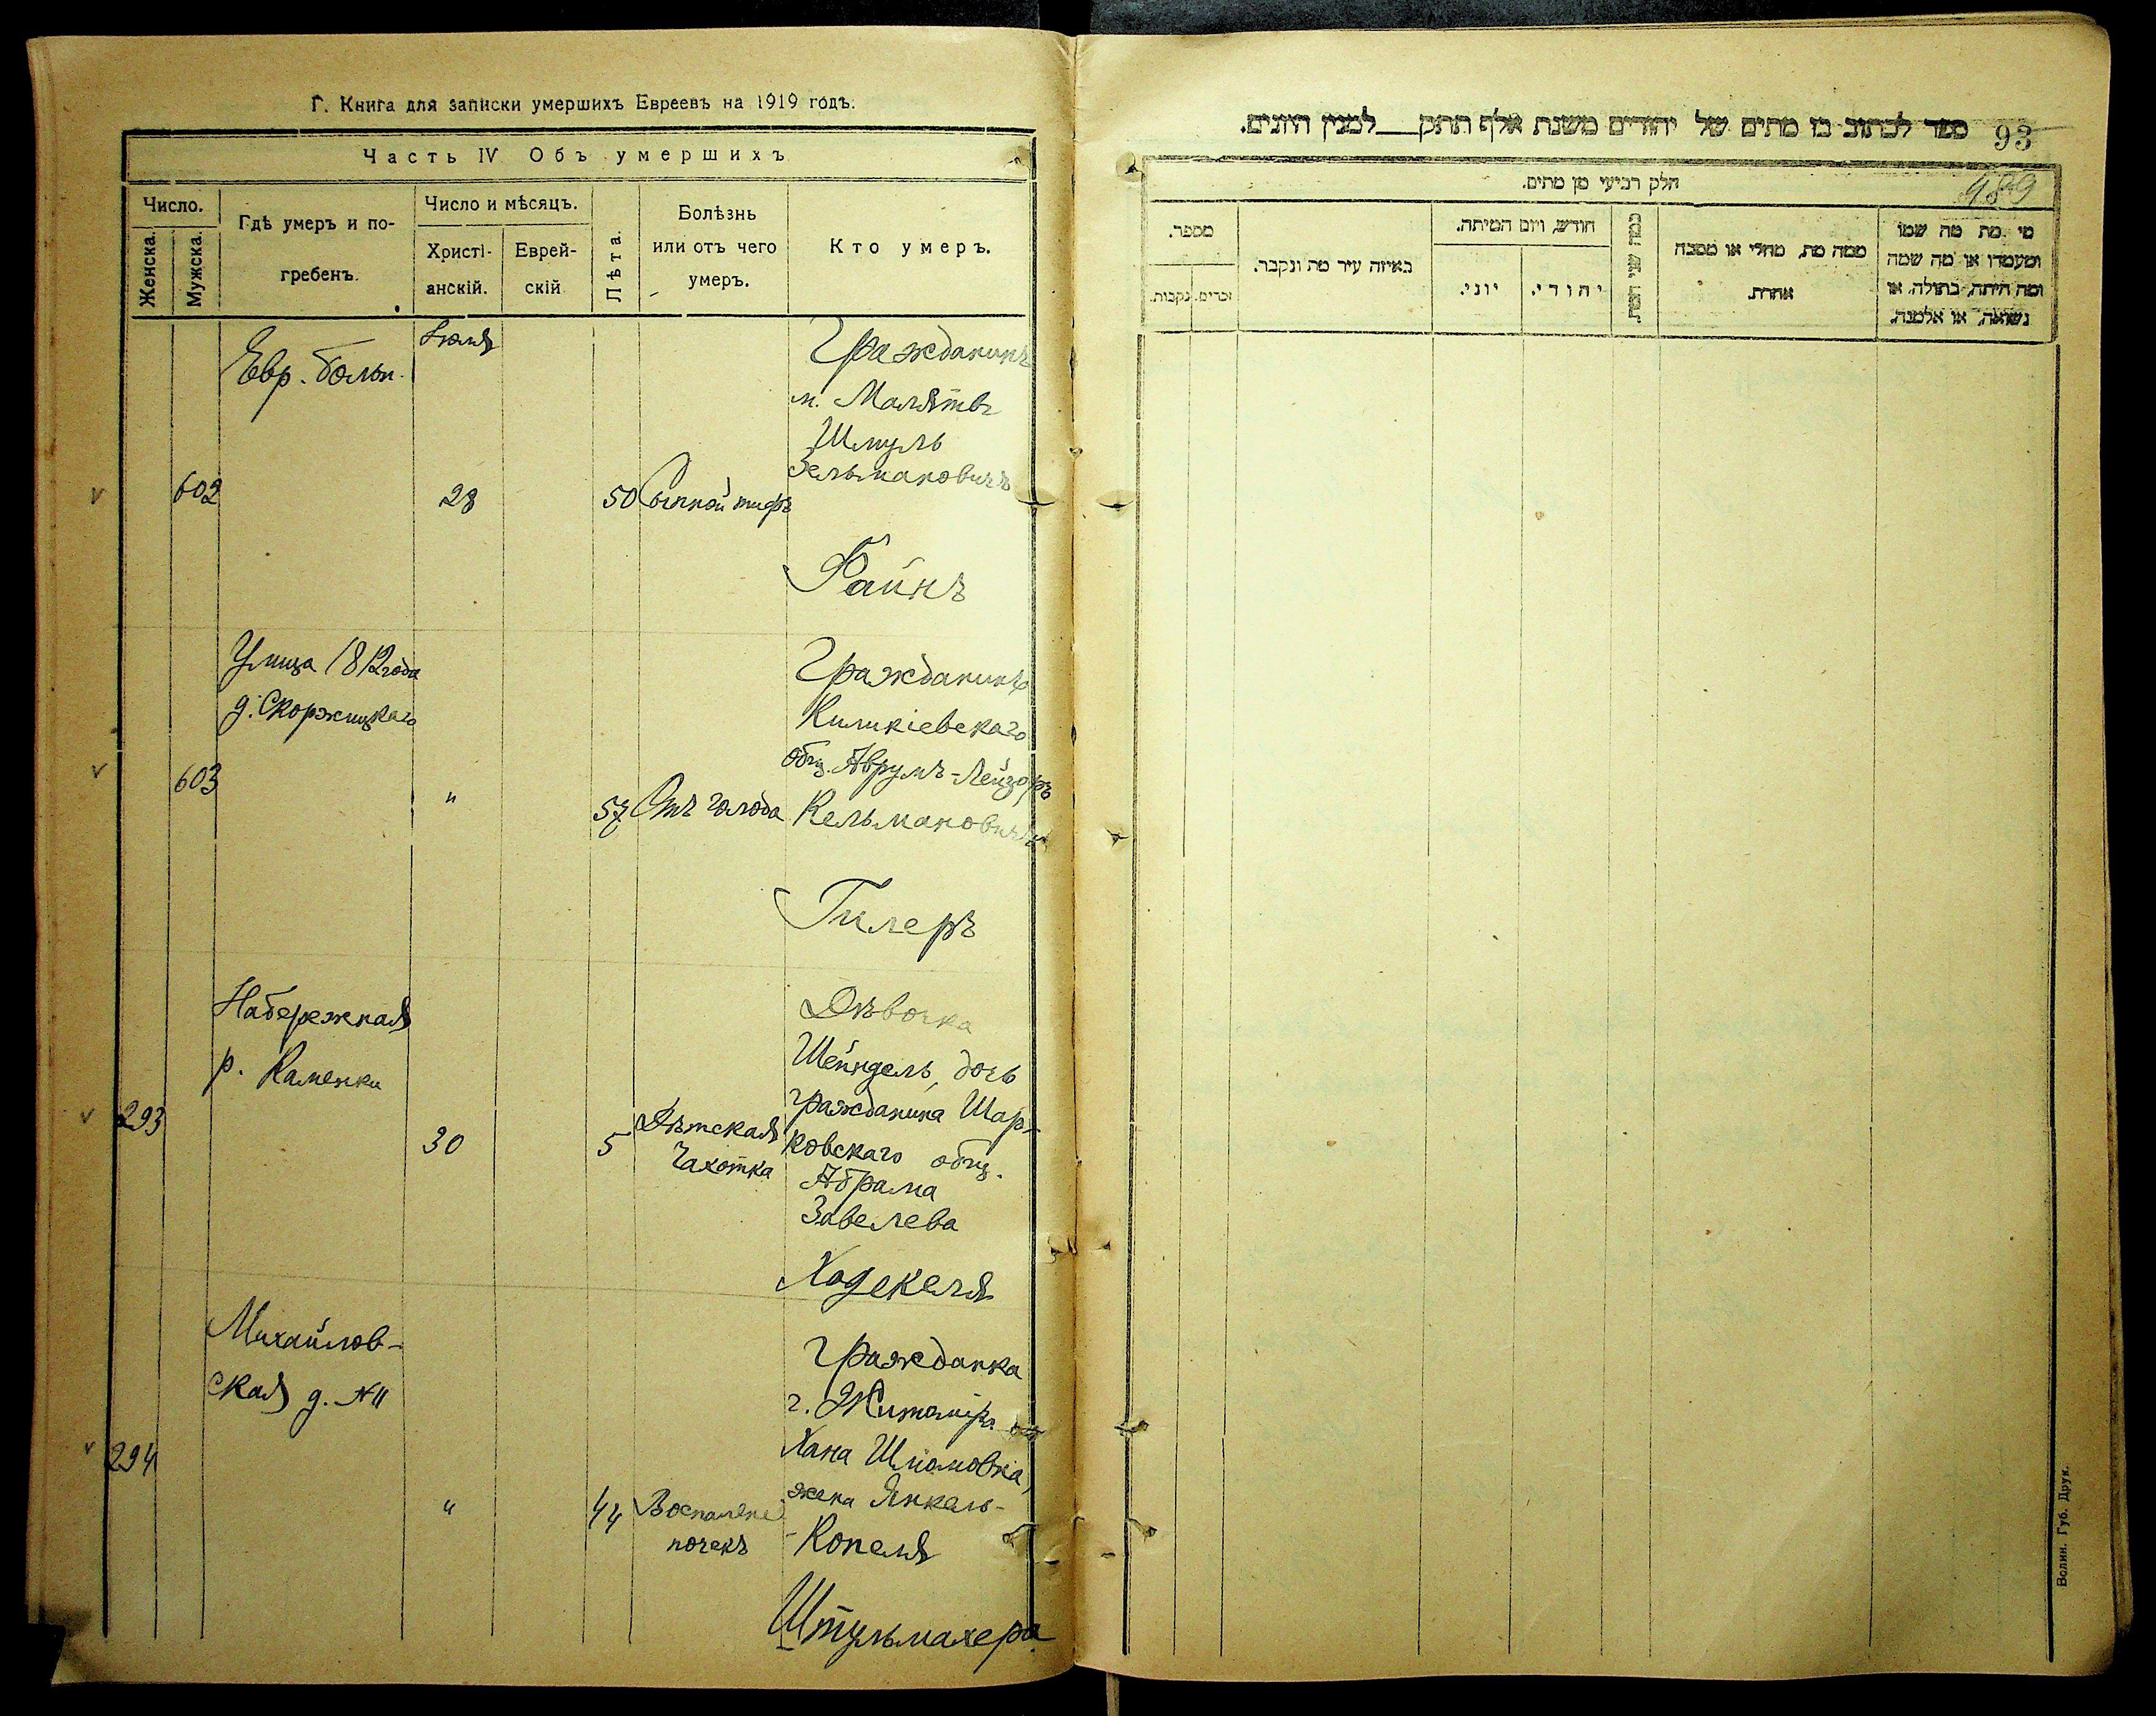 Г. Книга для записки умершихъ Евреевъ на 1919 годъ.
Часть IV Объ умершихъ
Число.
Женска.
Мужска.
Гдѣ умеръ и по-
гребенъ.
Число и мѣсяцъ.
Христі-
анскій.
Еврей-
скій
Лѣта.
Болѣзнь
или отъ чего
умеръ.
Кто умеръ.
602
Евр. больн.
Іюля
28
50
Сыпной тифъ
Гражданинъ
м. Малятъ
Шмуль
Зельмановичъ
Файнъ
603
Улица 1812 года
д. Скоржицкаго
"
57
Отъ голода
Гражданинъ
Киликіевскаго
общ. Аврумъ-Лейзоръ
Кельмановичъ
Гилеръ
293
Набережная
р. Каменки
30
5
Дѣтская
чахотка
Дѣвочка
Шейндель, дочь
гражданина Шар-
ковскаго общ.
Абрама
Завелева
Ходекеля
294
Михайлов-
ская д. №11
"
44
Воспаленіе
почекъ
Гражданка
г. Житоміра
Хана Шломовна,
жена Янкель-
-Копеля
Штульмахера
93
ספר לכתוב בו מתים של יהודים משנת אלף תתק ל למנין היונים.
489
חלק רביעי מן מתים.
מספר.
זכרים.
נקבות.
באיזה עיר מת ונקבר.
חודש, ויום המיתה.
יוני.
יהודי.
כמה שני המת
ממה מת, מחלי או מסבה
אחרת.
מי מת מה שמו
ומעמדו או מה שמה
ומה היתה, בתולה, או
נשואה, או אלמנה.
Волин. Губ. Друк.